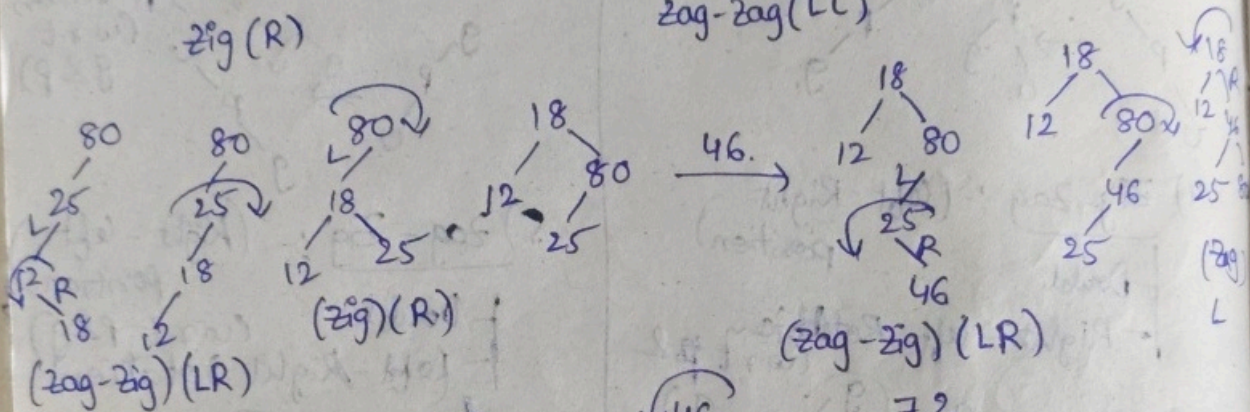 zig (R)
zag-zag (LL)
80
25
L
12
R
18
(zag-zig) (LR)
80
25
18
12
80
L
18
12
25
(zig) (R)
18
12
80
25
46.
18
12
80
L
25
R
46
(zag-zig) (LR)
18
12
80
46
25
18
R
12
46
25
(zag)
L
46
72